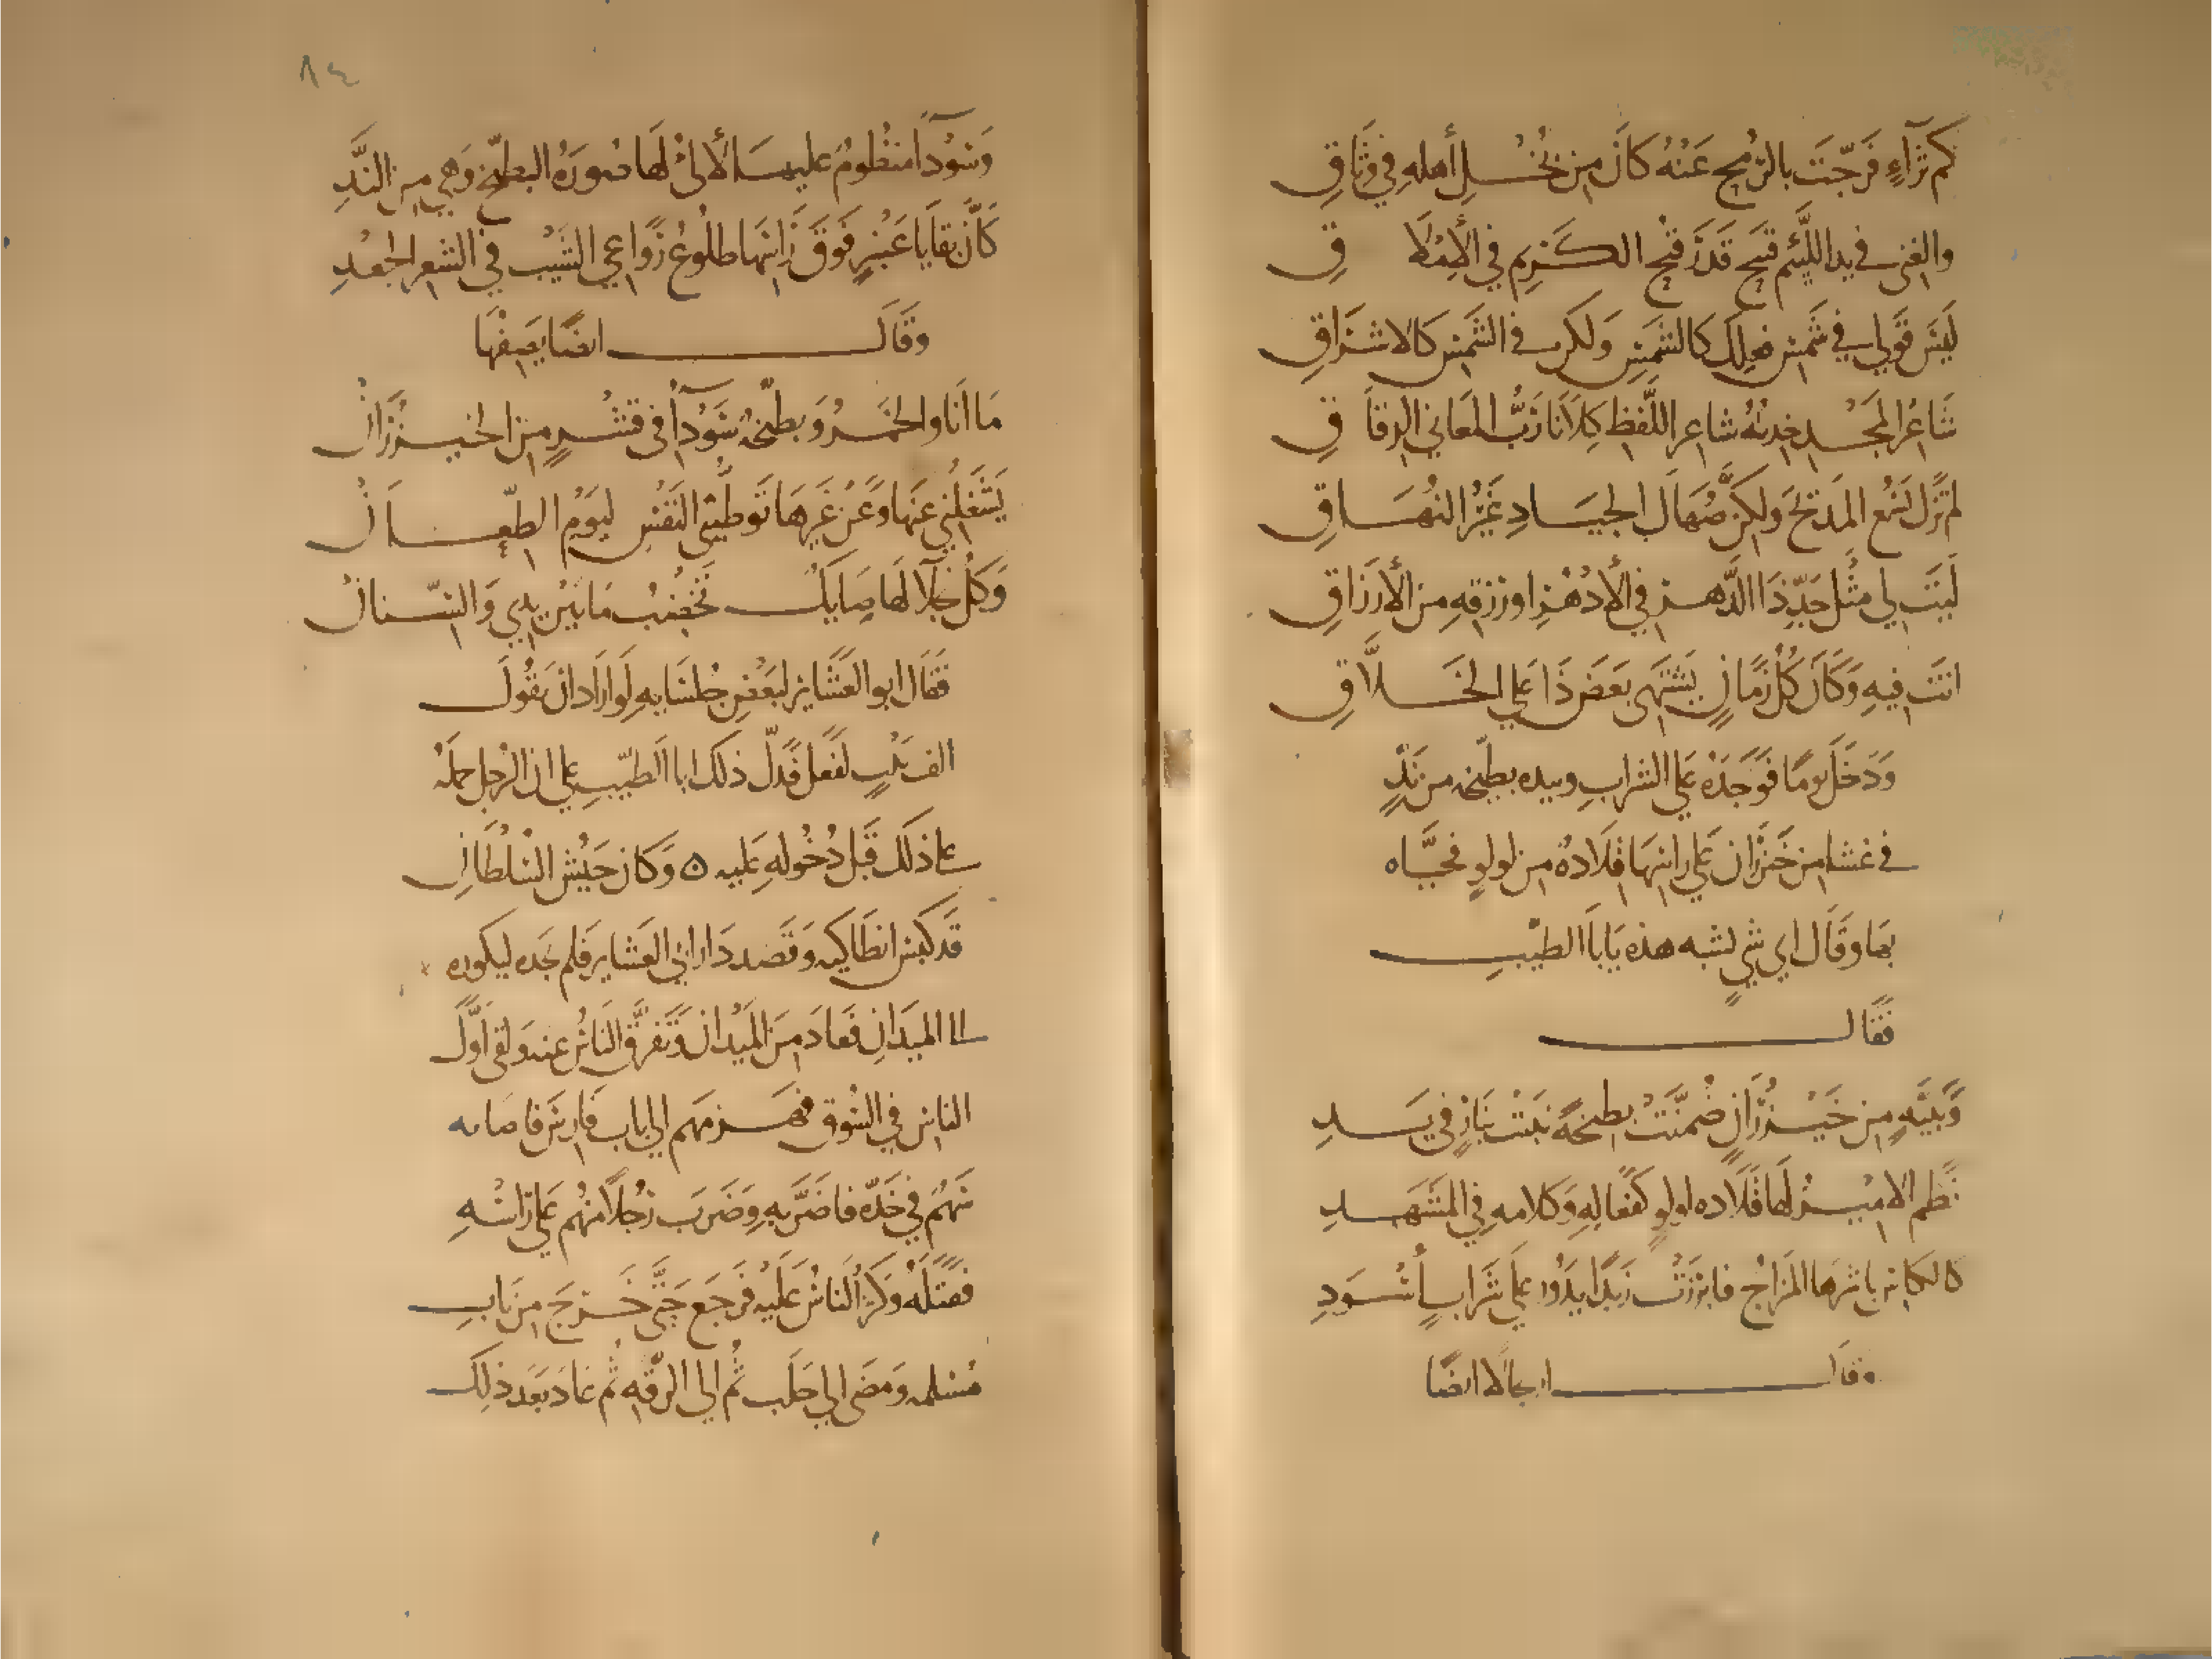 كَم ثَرآءٍ فَرّجَت بالرُمحِ عَنْهُ كانَ مِن بُخْلِ أَهلِهِ في وَثَاقِ
والغِنى في يد اللَّئيم قبيح قَدرَ قُبْح الكَريم في الأِملَاقِ
لَيسَ قَولي في شَمسِ فِعلِكَ كالشَمسِ وَلكن في الشَمسِ كالاشرَاقِ
شَاعُر المَجْدِ خِدنُهُ شاعر اللَّفظِ كِلانَا رَبُّ المَعاني الدِقَاقِ
لم تَزَل تَسْمَع المَديحَ ولكنَّ صُهَالَ الجِيَادِ غَيرُ النُهَاقِ
لَيتَ لي مثْل جَدِّ ذَا الدَّهرِ في الأَدْهُرِ او رزقِهِ من الأَرزَاقِ
انتَ فيهِ وَكانَ كُل زمَانٍ يَشتَهى بَعضَ ذَا عَلى الخَلَّاقِ
وَدَخَل يومًا فوَجَدَهُ عَلى الشراب وبيده بطيخه من نَدٍّ
في غشا من خَيزُرَان عَلى راسِهَا قلَادهُ من لولو فحَيَّاه
بها وقَال اي شي تشبه هذه يَابا الطَيّبِ
فَقَال
وَبَنِيَّهٍ مِن خَيْزُرَانٍ ضُمّنَتْ بطيخَةً نَبَتَت بنَارٍ في يَدِ
نَظَم الامِيرُ لهَا قلَاده لولوٍ كفعَالِهِ وَكلامه في المَشهَدِ
كالكاس باشَرهَا المزاجُ فابرَزَتْ زَبَدًا يَدُورُ على شَرابٍ أَسْوَدِ
وقال ارتجالا ايضًا
٨٤
وَسَودآء منظُومٌ عليها لأَلئٌ لهَا صُورَهُ البطيخ وَهي من النَدِّ
كأنّ بقايَا عَنْبرٍ فَوقَ رَاسِهَا طلُوعُ رَواعي الشَيْب في الشعر الجعْدِ
وقَالَ ايضًا يصفُهَا
مَا اَنا والخَمرُ وَبطّيخهٌ سَودآ في قشْرٍ من الخيزُرَانْ
يَشْغَلُني عَنها وَعَن غيرهَا تَوطيني النَفسَ ليَوم الطّعَانْ
وَكُل نجلآ لهَا صَايكٌ يخضبُ مَا بَيْن يدي وَالسّنانْ
فقَال ابو العَشَاير لبَعض جلسَايه لَو اراد ان يقُولَ
الف بَيتٍ لفعَل فدَلّ ذلك ابا الطَيّبِ على ان الرجل حملَهُ
على ذلَك قَبل دُخُولهِ عَليه ٥ وَكان جَيْش السُلطَانِ
قَد كبسَ انطَاكيه وَقصَد دَار ابي العَشاير فلم يجده ليكوره
الى الميدَانِ فعادَ مِنَ المَيْدانِ وَتَفرَّق النَاسُ عنه وَلقي اوَّلَ
الناس في السُوق فهزمهم الى باب فَارسَ فاصابه
سَهمٌ في خَدِّه فاضَرَّ بهِ وَضَربَ رَجُلاً منهُم عَلى رَاسهِ
فقَتَلَهُ وَكرّ النَاسُ عَليْه فَرجَع حَتّى خَرجَ مِن بَابِ
مَسلمه وَمضَى الى حَلَب ثم الى الرّقه ثم عادَ بعَد ذلِكَ